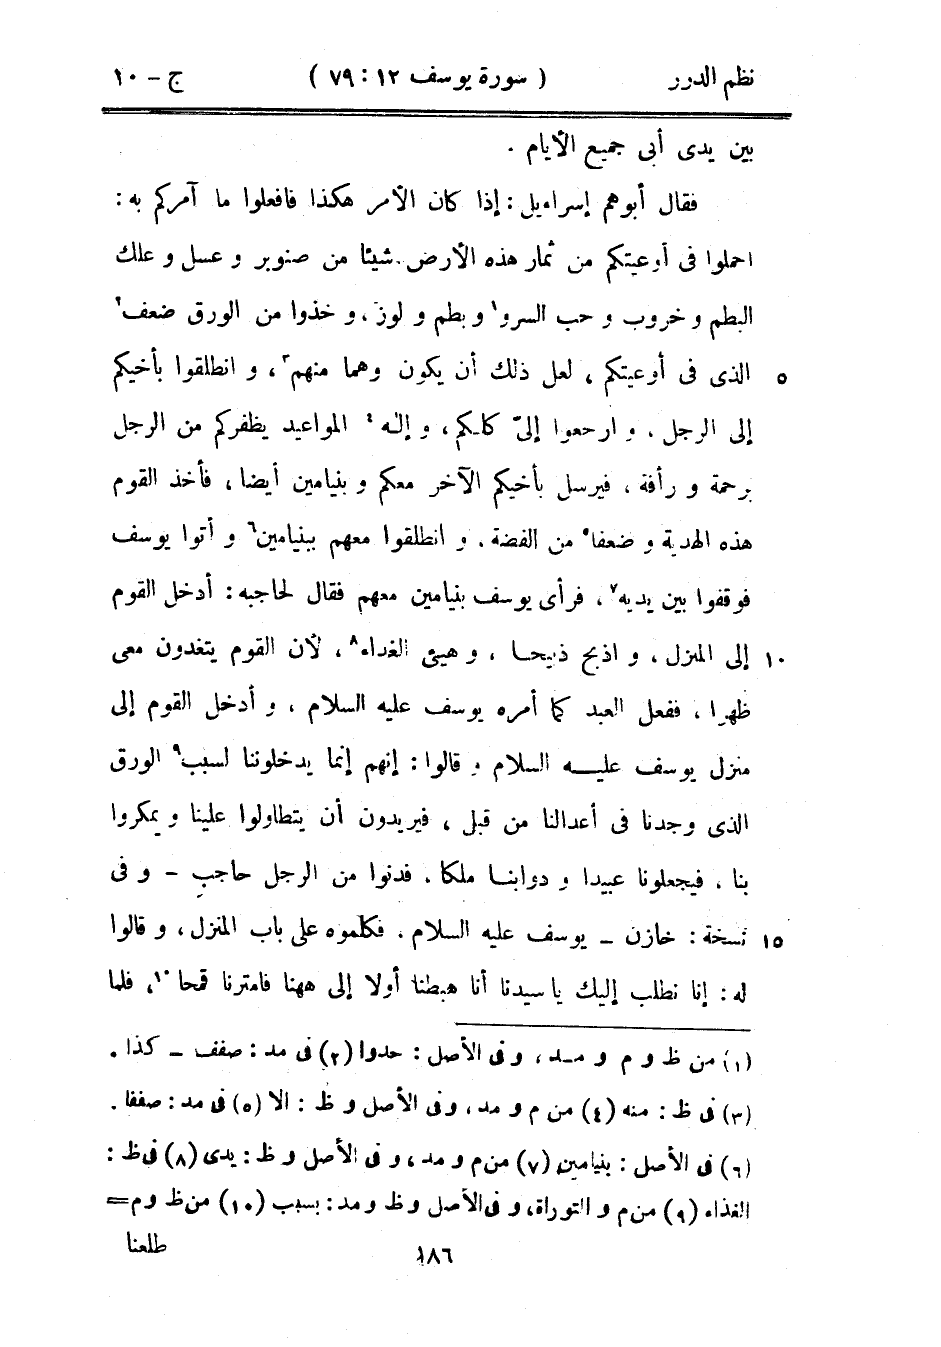 نظم الدرر ( سورة يوسف ١٢ : ٧٩ ) ج - ١٠
بين يدى أبى جميع الأيام .
فقال أبوهم إسراءيل : إذا كان الأمر هكذا فافعلوا ما آمركم به :
احملوا فى أوعيتكم من ثمار هذه الأرض شيئا من صنوبر و عسل و علك
البطم و خروب و حب السرو١ و بطم و لوز ، و خذوا من الورق ضعف٢
٥ الذى فى أوعيتكم ، لعل ذلك أن يكون وهما منهم٣ ، و انطلقوا بأخيكم
إلى الرجل ، و ارجعوا إلىّ كلكم ، و إله٤ المواعيد يظفركم من الرجل
برحمة و رأفة ، فيرسل بأخيكم الآخر معكم و بنيامين أيضا ، فأخذ القوم
هذه الهدية و ضعفا٥ من الفضة ، و انطلقوا معهم ببنيامين٦ و أتوا يوسف
فوقفوا بين يديه٧ ، فرأى يوسف بنيامين معهم فقال لحاجبه : أدخل القوم
١٠ إلى المنزل ، و اذبح ذبيحا ، و هيئ الغداء٨ ، لأن القوم يتغدون معى
ظهرا ، ففعل العبد كما أمره يوسف عليه السلام ، و أدخل القوم إلى
منزل يوسف عليه السلام و قالوا : إنهم إنما يدخلوننا لسبب٩ الورق
الذى وجدنا فى أعدالنا من قبل ، فيريدون أن يتطاولوا علينا و يمكروا
بنا ، فيجعلونا عبيدا و دوابنا ملكا ، فدنوا من الرجل حاجب - و فى
١٥ نسخة : خازن - يوسف عليه السلام ، فكلموه على باب المنزل ، و قالوا
له : إنا نطلب إليك يا سيدنا أنا هبطنا أولا إلى ههنا فامترنا قمحا١٠ ، فلما
(١) من ظ و م و مد ، و فى الأصل : حدوا (٢) فى مد : صفف - كذا .
(٣) فى ظ : منه (٤) من م و مد ، وفى الأصل و ظ : الا (٥) فى مد : صففا .
(٦) فى الأصل : بنيامين (٧) من م و مد ، و فى الأصل و ظ : يدى (٨) فى ظ :
الغذاء (٩) من م و التوراة، و فى الأصل و ظ و مد : بسبب (١٠) من ظ و م =
طلعنا
١٨٦